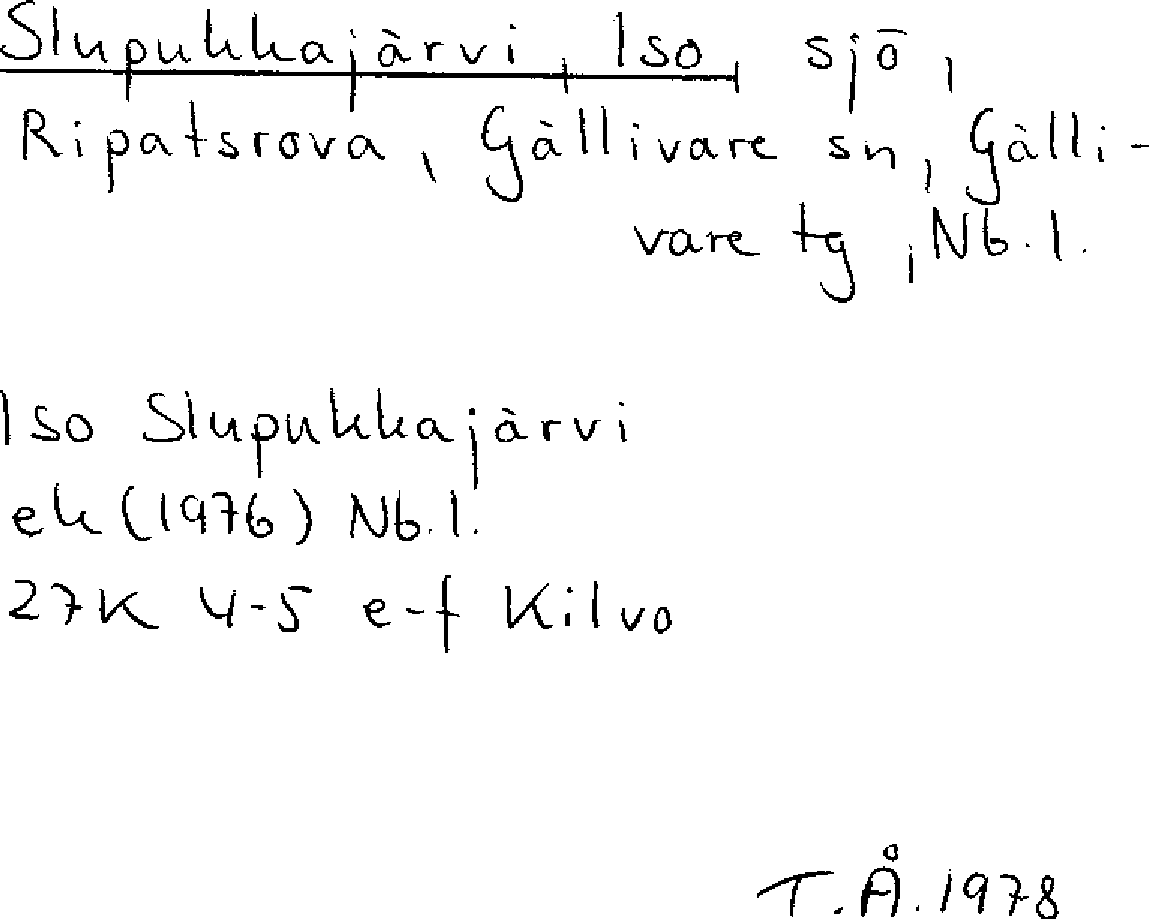 Slupukkajärvi, Iso sjö,
Ripatsrova, Gällivare sn, Gälli-
vare tg, Nb.l.
Iso Slupukkajärvi
ek (1976) Nb.l.
27K 4-5 e-f Kilvo
T.Å.1978